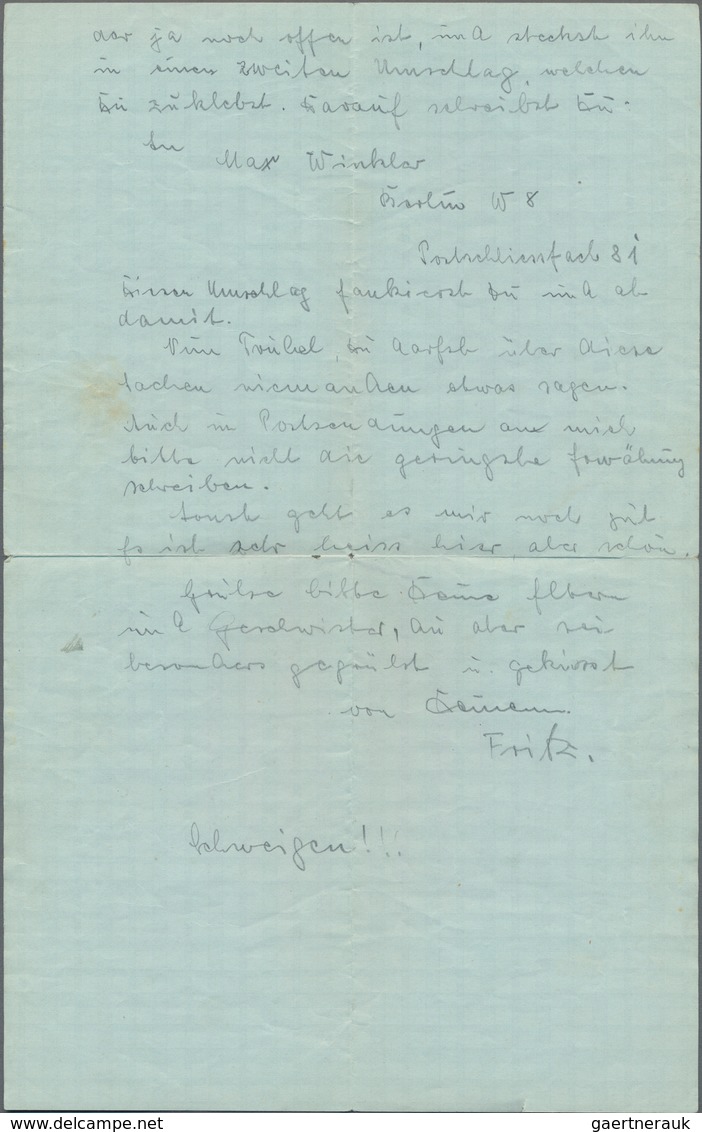 der ja noch offen ist, und steckst ihn
in einen zweiten Umschlag, welchen
Du zuklebst. Darauf schreibst Du.
An
Max Winkler
Berlin W 8
Postschliessfach 81
Diesen Umschlag fankierst Du und ab
damit.
Nun Trudel, Du darfst über diese
Sachen niemanden etwas sagen.
Auch in Postsendungen an mich
bitte nicht die geringste Erwähnung
schreiben.
Sonst geht es mir noch gut
Es ist sehr heiss hier, aber schön.
Grüße bitte Deine Eltern
und Geschwister, du aber sei
besonders gegrüßt u. geküsst
von Deinem
Fritz.
Schweigen!!!
gaertnerauk